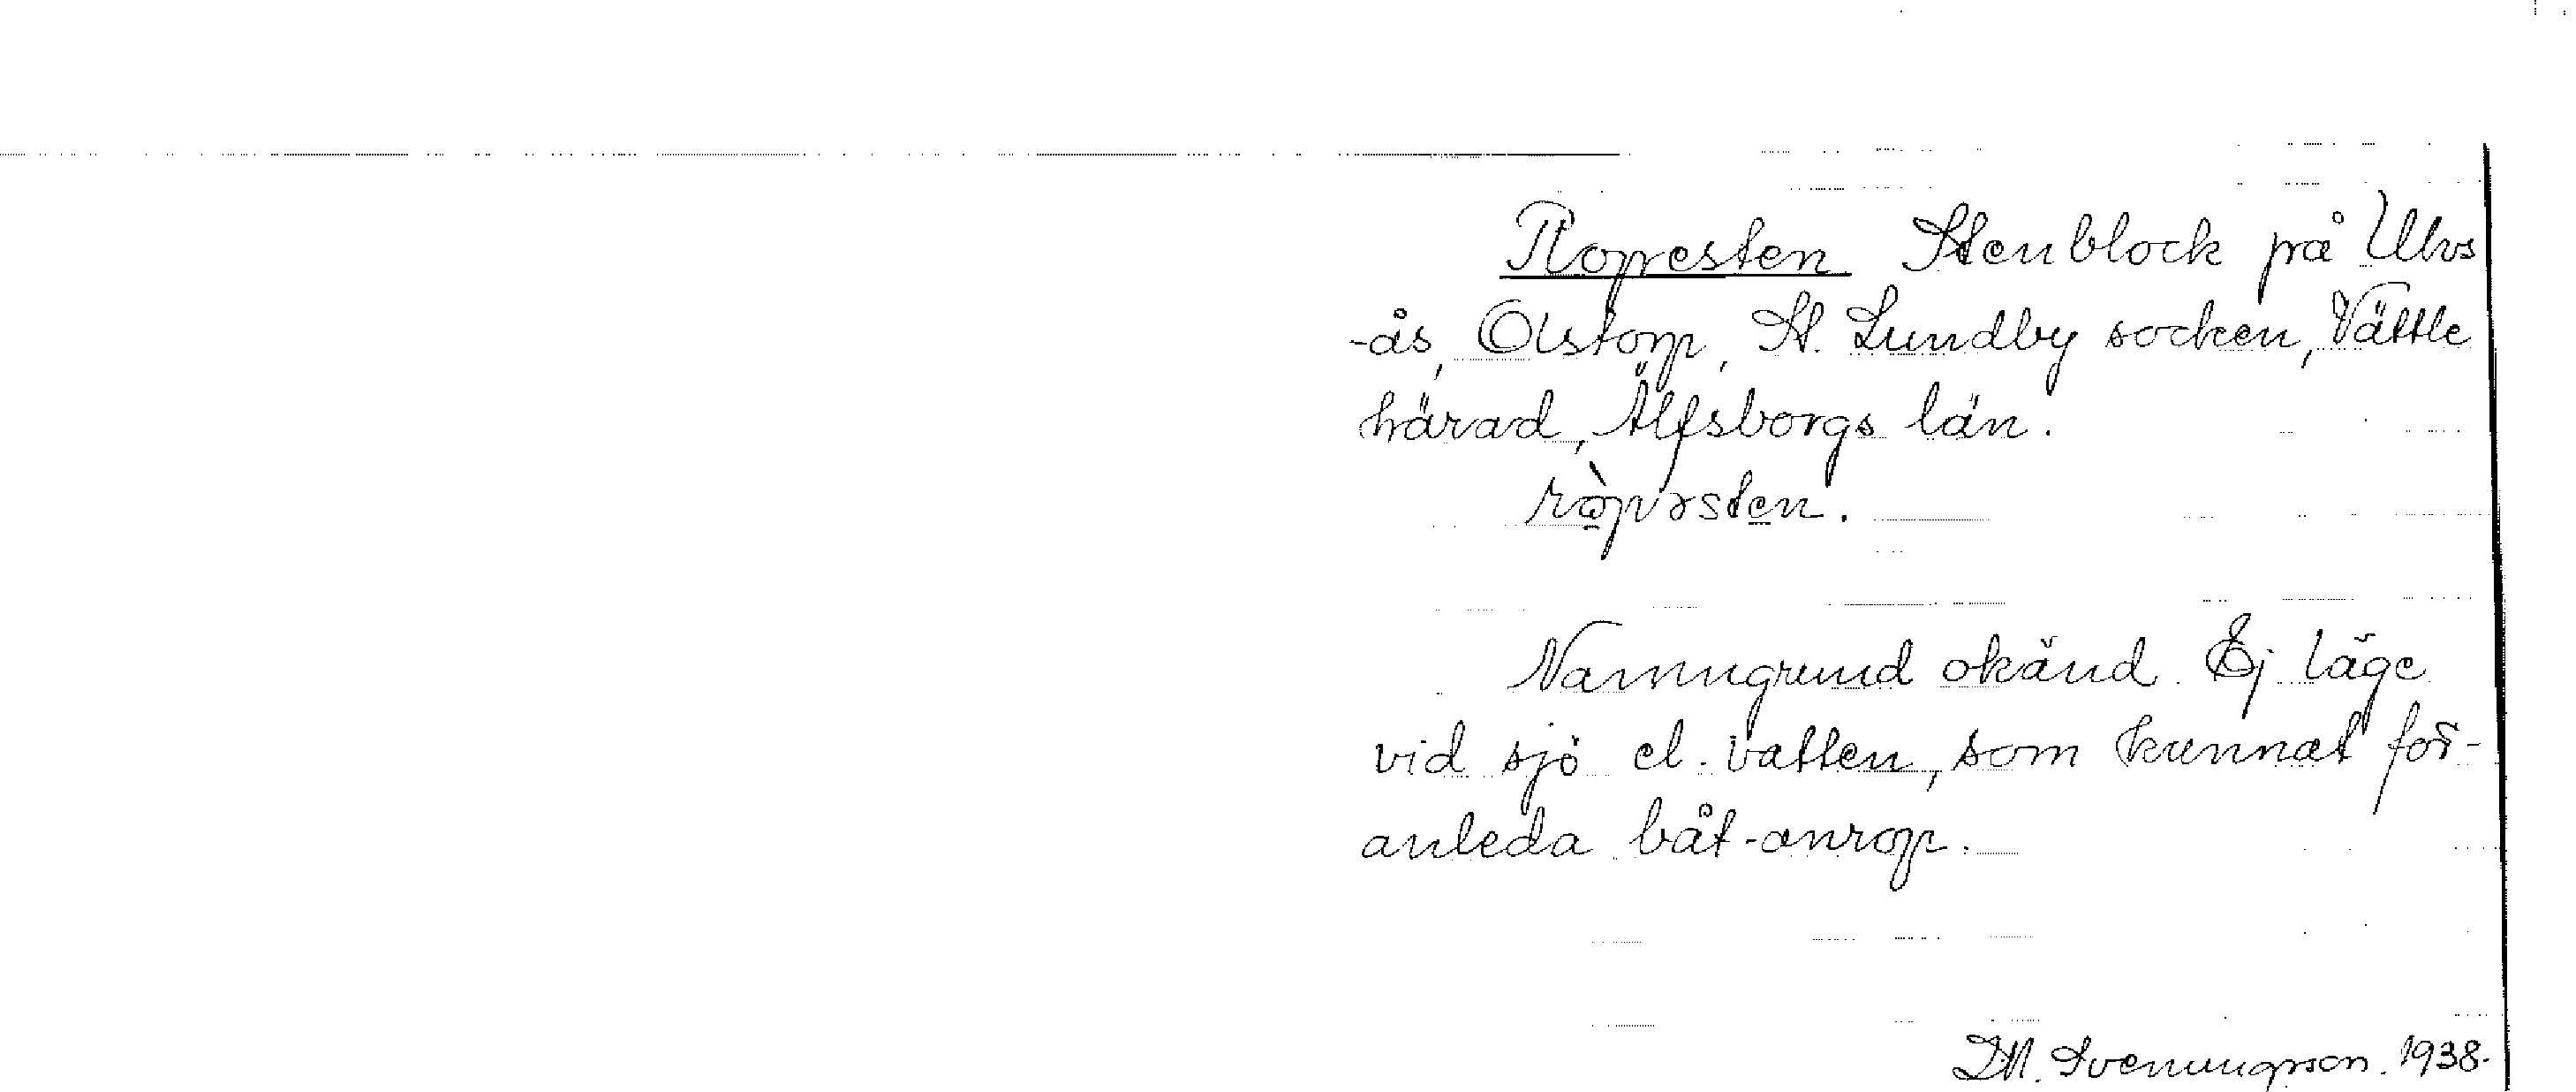 Ropesten. Stenblock på Ulvs
-ås, Olstorp, St. Lundby socken, Vättle
härad, Älfsborgs län.
ròpəsten.
Namngrund okänd. Ej läge
vid sjö el. vatten, som kunnat för-
anleda båt-anrop.
Svenungsson. 1938.